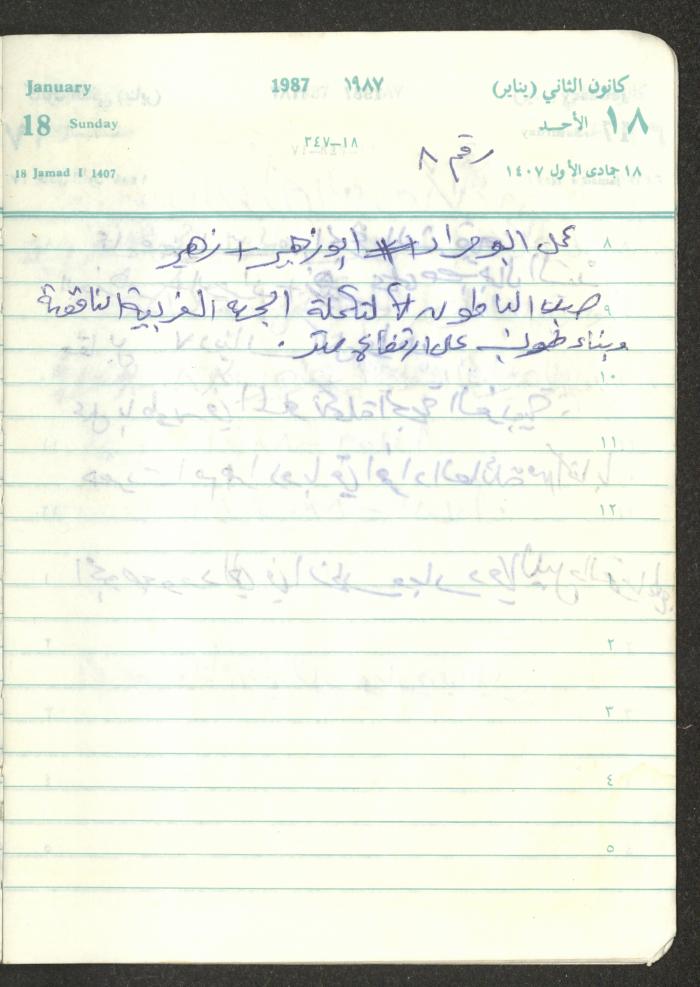 January 1987 ١٩٨٧ كانون الثاني (يناير)
18 Sunday ١٨ الأحـد
١٨–٣٤٧
18 Jamad I 1407 ١٨ جمادى الأول ١٤٠٧
رقم ٨
٨
عمل ابو مراد + ابو زهير + زهير
٩
صب الباطون لتكملة الجهة الغربية الناقصة
وبناء طوب على ارتفاع متر .
١٠
١١
١٢
١
٢
٣
٤
٥